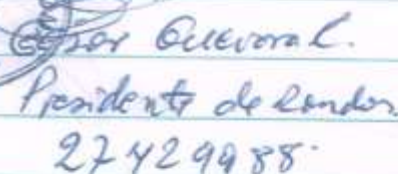 César Guevara C.
Presidente de Rondas.
27429988.